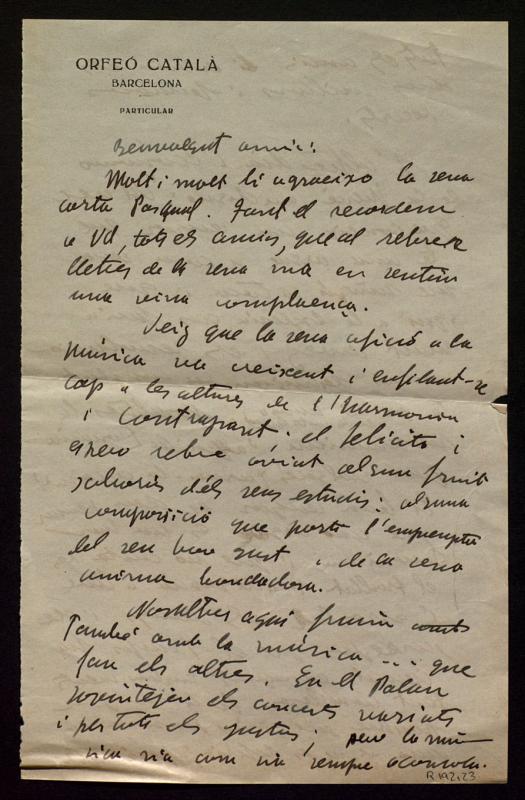 ORFEÓ CATALÀ
BARCELONA
PARTICULAR
Benvolgut amic:
Molt i molt li agraeixo la seva
carta Pasqual. Tant el recordem
a Vd, tots els amics, que al rebre
lletres de la seva mà en sentim
una viva complaença.
Veig que la seva afició a la
Música va creixent i enfilant-se
cap a les altures de l'Harmonia
i Contrapunt. el felicito i
espero rebre aviat algun fruit
saborós dels seus estudis: alguna
composició que porti l'empempta
del seu bon gust i de la seva
anima bondadosa.
Nosaltres aquí fruim amb
també amb la música ... que
fan els altres. En el Palau
sovintejen els concerts variats
i per tots els gustos; pero la mú-
sica
com
sempre aconsola.
R 192,23